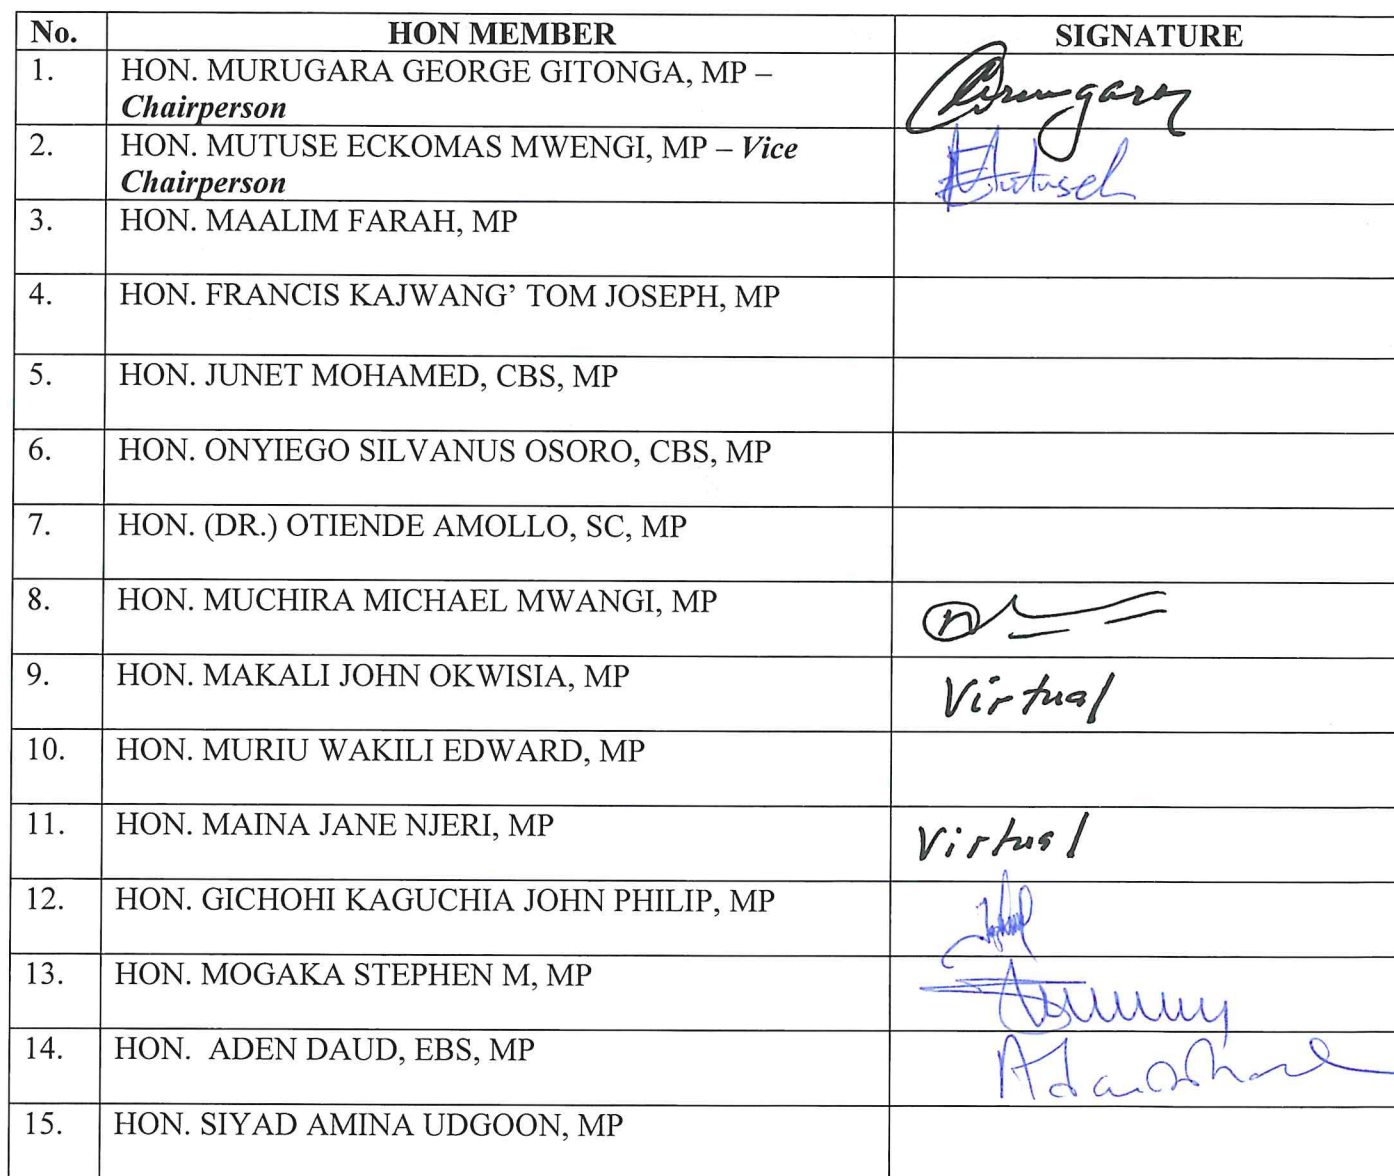 No. HON MEMBER SIGNATURE
1. HON. MURUGARA GEORGE GITONGA, MP –
Chairperson
2. HON. MUTUSE ECKOMAS MWENGI, MP – Vice
Chairperson
3. HON. MAALIM FARAH, MP
4. HON. FRANCIS KAJWANG’ TOM JOSEPH, MP
5. HON. JUNET MOHAMED, CBS, MP
6. HON. ONYIEGO SILVANUS OSORO, CBS, MP
7. HON. (DR.) OTIENDE AMOLLO, SC, MP
8. HON. MUCHIRA MICHAEL MWANGI, MP
9. HON. MAKALI JOHN OKWISIA, MP Virtual
10. HON. MURIU WAKILI EDWARD, MP
11. HON. MAINA JANE NJERI, MP Virtual
12. HON. GICHOHI KAGUCHIA JOHN PHILIP, MP
13. HON. MOGAKA STEPHEN M, MP
14. HON. ADEN DAUD, EBS, MP
15. HON. SIYAD AMINA UDGOON, MP